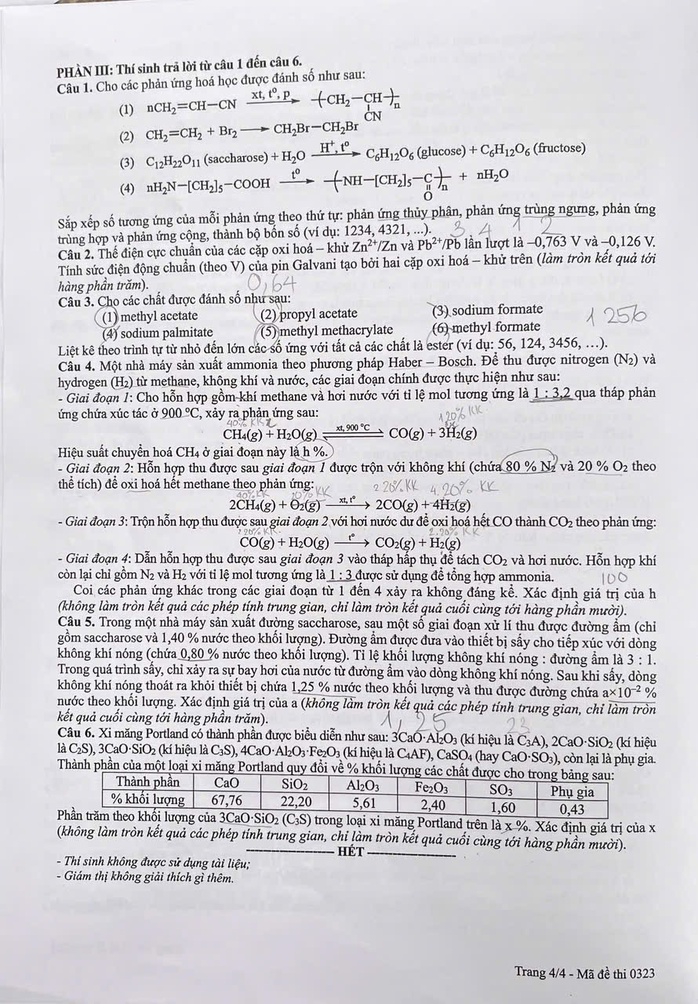 PHẦN III: Thí sinh trả lời từ câu 1 đến câu 6.
Câu 1. Cho các phản ứng hoá học được đánh số như sau:
(1) nCH₂=CH−CN xt, t⁰, p → −(CH₂−CH−)ₙ
CN
(2) CH₂=CH₂ + Br₂ → CH₂Br−CH₂Br
(3) C₁₂H₂₂O₁₁ (saccharose) + H₂O H⁺, t⁰ → C₆H₁₂O₆ (glucose) + C₆H₁₂O₆ (fructose)
(4) nH₂N−[CH₂]₅−COOH t⁰ → −(NH−[CH₂]₅−C−)ₙ + nH₂O
O
Sắp xếp số tương ứng của mỗi phản ứng theo thứ tự: phản ứng thủy phân, phản ứng trùng ngưng, phản ứng
trùng hợp và phản ứng cộng, thành bộ bốn số (ví dụ: 1234, 4321, ...). 3, 4 1 2
Câu 2. Thế điện cực chuẩn của các cặp oxi hoá – khử Zn²⁺/Zn và Pb²⁺/Pb lần lượt là –0,763 V và –0,126 V.
Tính sức điện động chuẩn (theo V) của pin Galvani tạo bởi hai cặp oxi hoá – khử trên (làm tròn kết quả tới
hàng phần trăm). 0,64
Câu 3. Cho các chất được đánh số như sau:
(1) methyl acetate (2) propyl acetate (3) sodium formate 1256
(4) sodium palmitate (5) methyl methacrylate (6) methyl formate
Liệt kê theo trình tự từ nhỏ đến lớn các số ứng với tất cả các chất là ester (ví dụ: 56, 124, 3456, …).
Câu 4. Một nhà máy sản xuất ammonia theo phương pháp Haber – Bosch. Để thu được nitrogen (N₂) và
hydrogen (H₂) từ methane, không khí và nước, các giai đoạn chính được thực hiện như sau:
- Giai đoạn 1: Cho hỗn hợp gồm khí methane và hơi nước với tỉ lệ mol tương ứng là 1 : 3,2 qua tháp phản
ứng chứa xúc tác ở 900 °C, xảy ra phản ứng sau:
40% KK 120% KK
CH₄(g) + H₂O(g) xt, 900 °C ⇌ CO(g) + 3H₂(g)
Hiệu suất chuyển hoá CH₄ ở giai đoạn này là h %.
- Giai đoạn 2: Hỗn hợp thu được sau giai đoạn 1 được trộn với không khí (chứa 80 % N₂ và 20 % O₂ theo
thể tích) để oxi hoá hết methane theo phản ứng:
40% KK 20% KK 2 20% KK 4. 20% KK
2CH₄(g) + O₂(g) xt, t⁰ → 2CO(g) + 4H₂(g)
- Giai đoạn 3: Trộn hỗn hợp thu được sau giai đoạn 2 với hơi nước dư để oxi hoá hết CO thành CO₂ theo phản ứng:
CO(g) + H₂O(g) t⁰ → CO₂(g) + H₂(g)
- Giai đoạn 4: Dẫn hỗn hợp thu được sau giai đoạn 3 vào tháp hấp thụ để tách CO₂ và hơi nước. Hỗn hợp khí
còn lại chỉ gồm N₂ và H₂ với tỉ lệ mol tương ứng là 1 : 3 được sử dụng để tổng hợp ammonia. 100
Coi các phản ứng khác trong các giai đoạn từ 1 đến 4 xảy ra không đáng kể. Xác định giá trị của h
(không làm tròn kết quả các phép tính trung gian, chỉ làm tròn kết quả cuối cùng tới hàng phần mười).
Câu 5. Trong một nhà máy sản xuất đường saccharose, sau một số giai đoạn xử lí thu được đường ẩm (chỉ
gồm saccharose và 1,40 % nước theo khối lượng). Đường ẩm được đưa vào thiết bị sấy cho tiếp xúc với dòng
không khí nóng (chứa 0,80 % nước theo khối lượng). Tỉ lệ khối lượng không khí nóng : đường ẩm là 3 : 1.
Trong quá trình sấy, chỉ xảy ra sự bay hơi của nước từ đường ẩm vào dòng không khí nóng. Sau khi sấy, dòng
không khí nóng thoát ra khỏi thiết bị chứa 1,25 % nước theo khối lượng và thu được đường chứa a×10⁻² %
nước theo khối lượng. Xác định giá trị của a (không làm tròn kết quả các phép tính trung gian, chỉ làm tròn
kết quả cuối cùng tới hàng phần trăm). 1,25 23
Câu 6. Xi măng Portland có thành phần được biểu diễn như sau: 3CaO·Al₂O₃ (kí hiệu là C₃A), 2CaO·SiO₂ (kí hiệu
là C₂S), 3CaO·SiO₂ (kí hiệu là C₃S), 4CaO·Al₂O₃·Fe₂O₃ (kí hiệu là C₄AF), CaSO₄ (hay CaO·SO₃), còn lại là phụ gia.
Thành phần của một loại xi măng Portland quy đổi về % khối lượng các chất được cho trong bảng sau:
Thành phần CaO SiO₂ Al₂O₃ Fe₂O₃ SO₃ Phụ gia
% khối lượng 67,76 22,20 5,61 2,40 1,60 0,43
Phần trăm theo khối lượng của 3CaO·SiO₂ (C₃S) trong loại xi măng Portland trên là x %. Xác định giá trị của x
(không làm tròn kết quả các phép tính trung gian, chỉ làm tròn kết quả cuối cùng tới hàng phần mười).
HẾT
- Thí sinh không được sử dụng tài liệu;
- Giám thị không giải thích gì thêm.
Trang 4/4 - Mã đề thi 0323